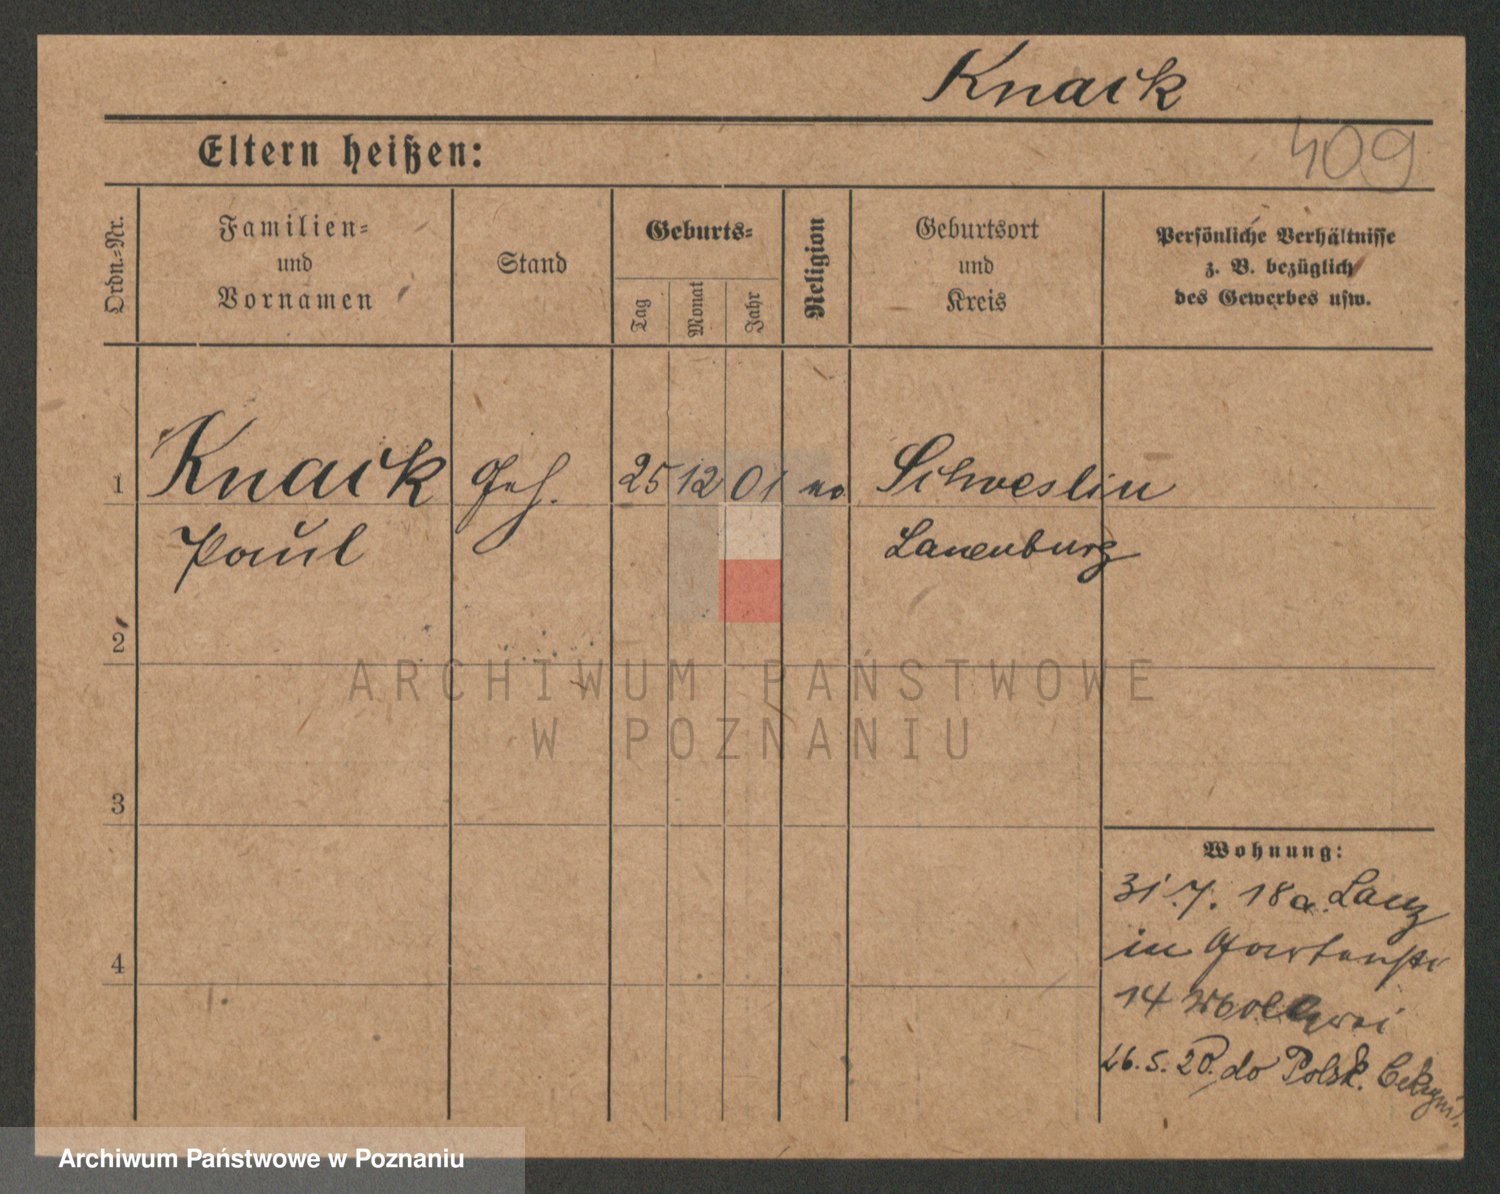 Knaik
409
Eltern heißen:
Ordn.-Nr.
Familien-
und
Vornamen
Stand
Geburts-
Tag
Monat
Jahr
Religion
Geburtsort
und
Kreis
Persönliche Verhältnisse
z. B. bezüglich
des Gewerbes usw.
1 Knaik Geh. 25 12 01 Schweslin
Paul Lauenburg
2
3
4
Wohnung:
31.7. 18 a. Lanz
in Gartenstr
14 Molkerei
26.5.20. do Polsk.
ARCHIWUM PAŃSTWOWE
W POZNANIU
Archiwum Państwowe w Poznaniu